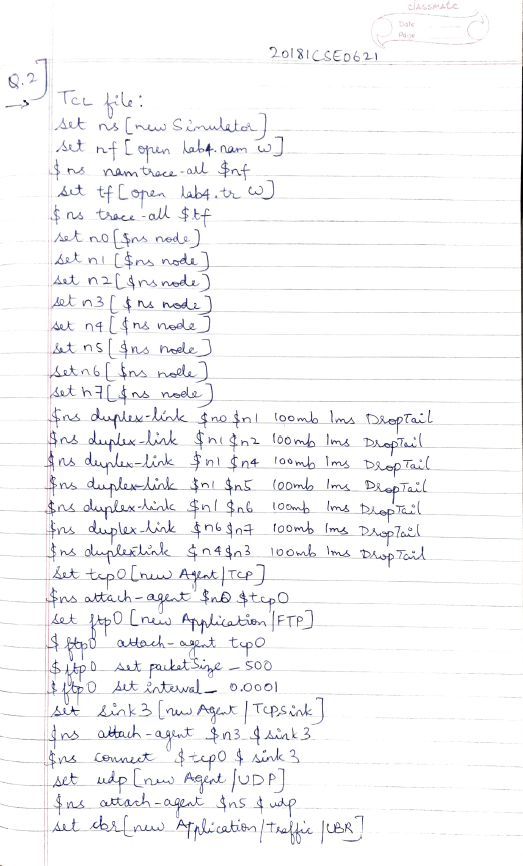 classmate
Date
Page
20181CSE0621
Q.2]
→ TCL file:
set ns [new Simulator]
set nf [open lab4.nam w]
$ns namtrace-all $nf
set tf [open lab4.tr w]
$ns trace-all $tf
set n0 [$ns node]
set n1 [$ns node]
set n2 [$ns node]
set n3 [$ns node]
set n4 [$ns node]
set n5 [$ns node]
set n6 [$ns node]
set n7 [$ns node]
$ns duplex-link $n0 $n1 100mb 1ms DropTail
$ns duplex-link $n1 $n2 100mb 1ms DropTail
$ns duplex-link $n1 $n4 100mb 1ms DropTail
$ns duplex-link $n1 $n5 100mb 1ms DropTail
$ns duplex-link $n1 $n6 100mb 1ms DropTail
$ns duplex-link $n6 $n7 100mb 1ms DropTail
$ns duplexlink $n4 $n3 100mb 1ms DropTail
set tcp0 [new Agent/TCP]
$ns attach-agent $n0 $tcp0
set ftp0 [new Application/FTP]
$ftp0 attach-agent tcp0
$ftp0 set packetSize_ 500
$ftp0 set interval_ 0.0001
set sink3 [new Agent/TCPsink]
$ns attach-agent $n3 $sink3
$ns connect $tcp0 $sink3
set udp [new Agent/UDP]
$ns attach-agent $n5 $udp
set cbr [new Application/Traffic/CBR]